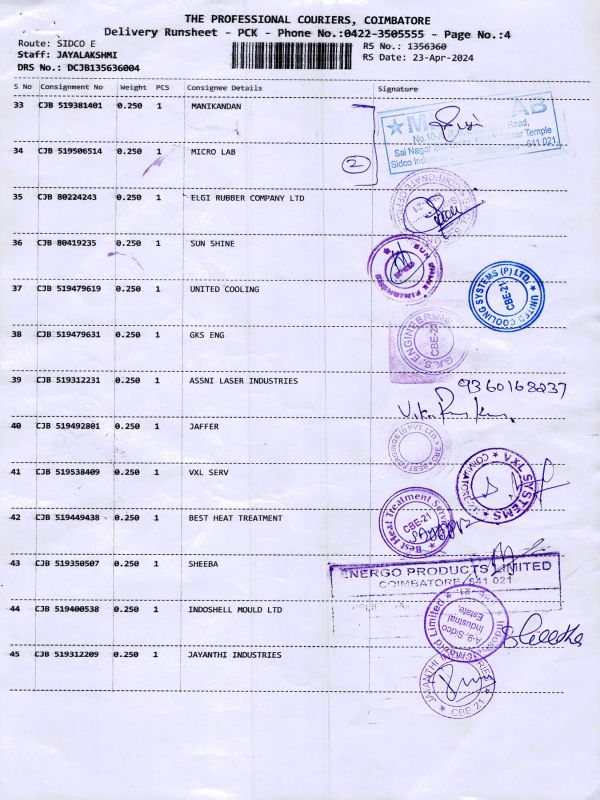 THE PROFESSIONAL COURIERS, COIMBATORE
Delivery Runsheet - PCK - Phone No.:0422-3505555 - Page No.:4
Route: SIDCO E
RS No.: 1356360
Staff: JAYALAKSHMI
RS Date: 23-Apr-2024
DRS No.: DCJB135636004
S No Consignment No Weight PCS Consignee Details Signature
33 CJB 519381401 0.250 1 MANIKANDAN
Road,
Temple
Sai Nagar
Sidco Indus 641 021.
2
34 CJB 519506514 0.250 1 MICRO LAB
35 CJB 80224243 0.250 1 ELGI RUBBER COMPANY LTD
36 CJB 80419235 0.250 1 SUN SHINE
37 CJB 519479619 0.250 1 UNITED COOLING
UNITED COOLING SYSTEMS (P) LTD.
CBE-21
38 CJB 519479631 0.250 1 GKS ENG
G.K.S. ENGINEERING
CBE-21
39 CJB 519312231 0.250 1 ASSNI LASER INDUSTRIES
9360168237
40 CJB 519492801 0.250 1 JAFFER
BEST FORGINGS (I) PVT LTD
41 CJB 519538409 0.250 1 VXL SERV
VXL SYSTEMS
42 CJB 519449438 0.250 1 BEST HEAT TREATMENT
Best Heat Treatment Serv
CBE-21
43 CJB 519350507 0.250 1 SHEEBA
ENERGO PRODUCTS LIMITED
COIMBATORE 641 021
44 CJB 519400538 0.250 1 INDOSHELL MOULD LTD
Indoshell Mould Limited
A-9, Sidco
Industrial
Estate,
45 CJB 519312209 0.250 1 JAYANTHI INDUSTRIES
JAYANTHI
CBE 21